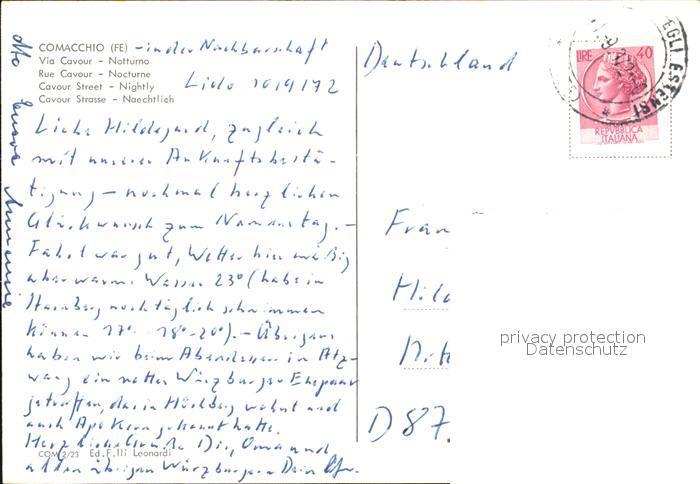 COMACCHIO (FE) - in der Nachbarschaft
Via Cavour - Notturno
Rue Cavour - Nocturne
Cavour Street - Nightly
Cavour Strasse - Naechtlich
Lido 10/9/72
Liebe Hildegard, zugleich
mit unserer Ankunftsbestä-
tigung - nochmal herzlichen
Glückwunsch zum Namenstag. -
Fahrt war gut, Wetter hier mäßig
aber warm. Wasser 23° (habe in
Starnberg noch täglich schwimmen
können 17° - 18° - 20°). - Übrigens
haben wir beim Abendessen in Atz-
wang ein nettes Würzburger Ehepaar
getroffen, das in Höchberg wohnt und
auch Apothern gekannt hatte.
Herzliche Grüße Dir, Oma und
allen übrigen Würzburgern Dein
COM 2/23 Ed. F.lli Leonardi
Deutschland
Frau
Hild
D 87.
LIRE 40
REPVBBLICA
ITALIANA
EGLI ESTENSI
privacy protection
Datenschutz